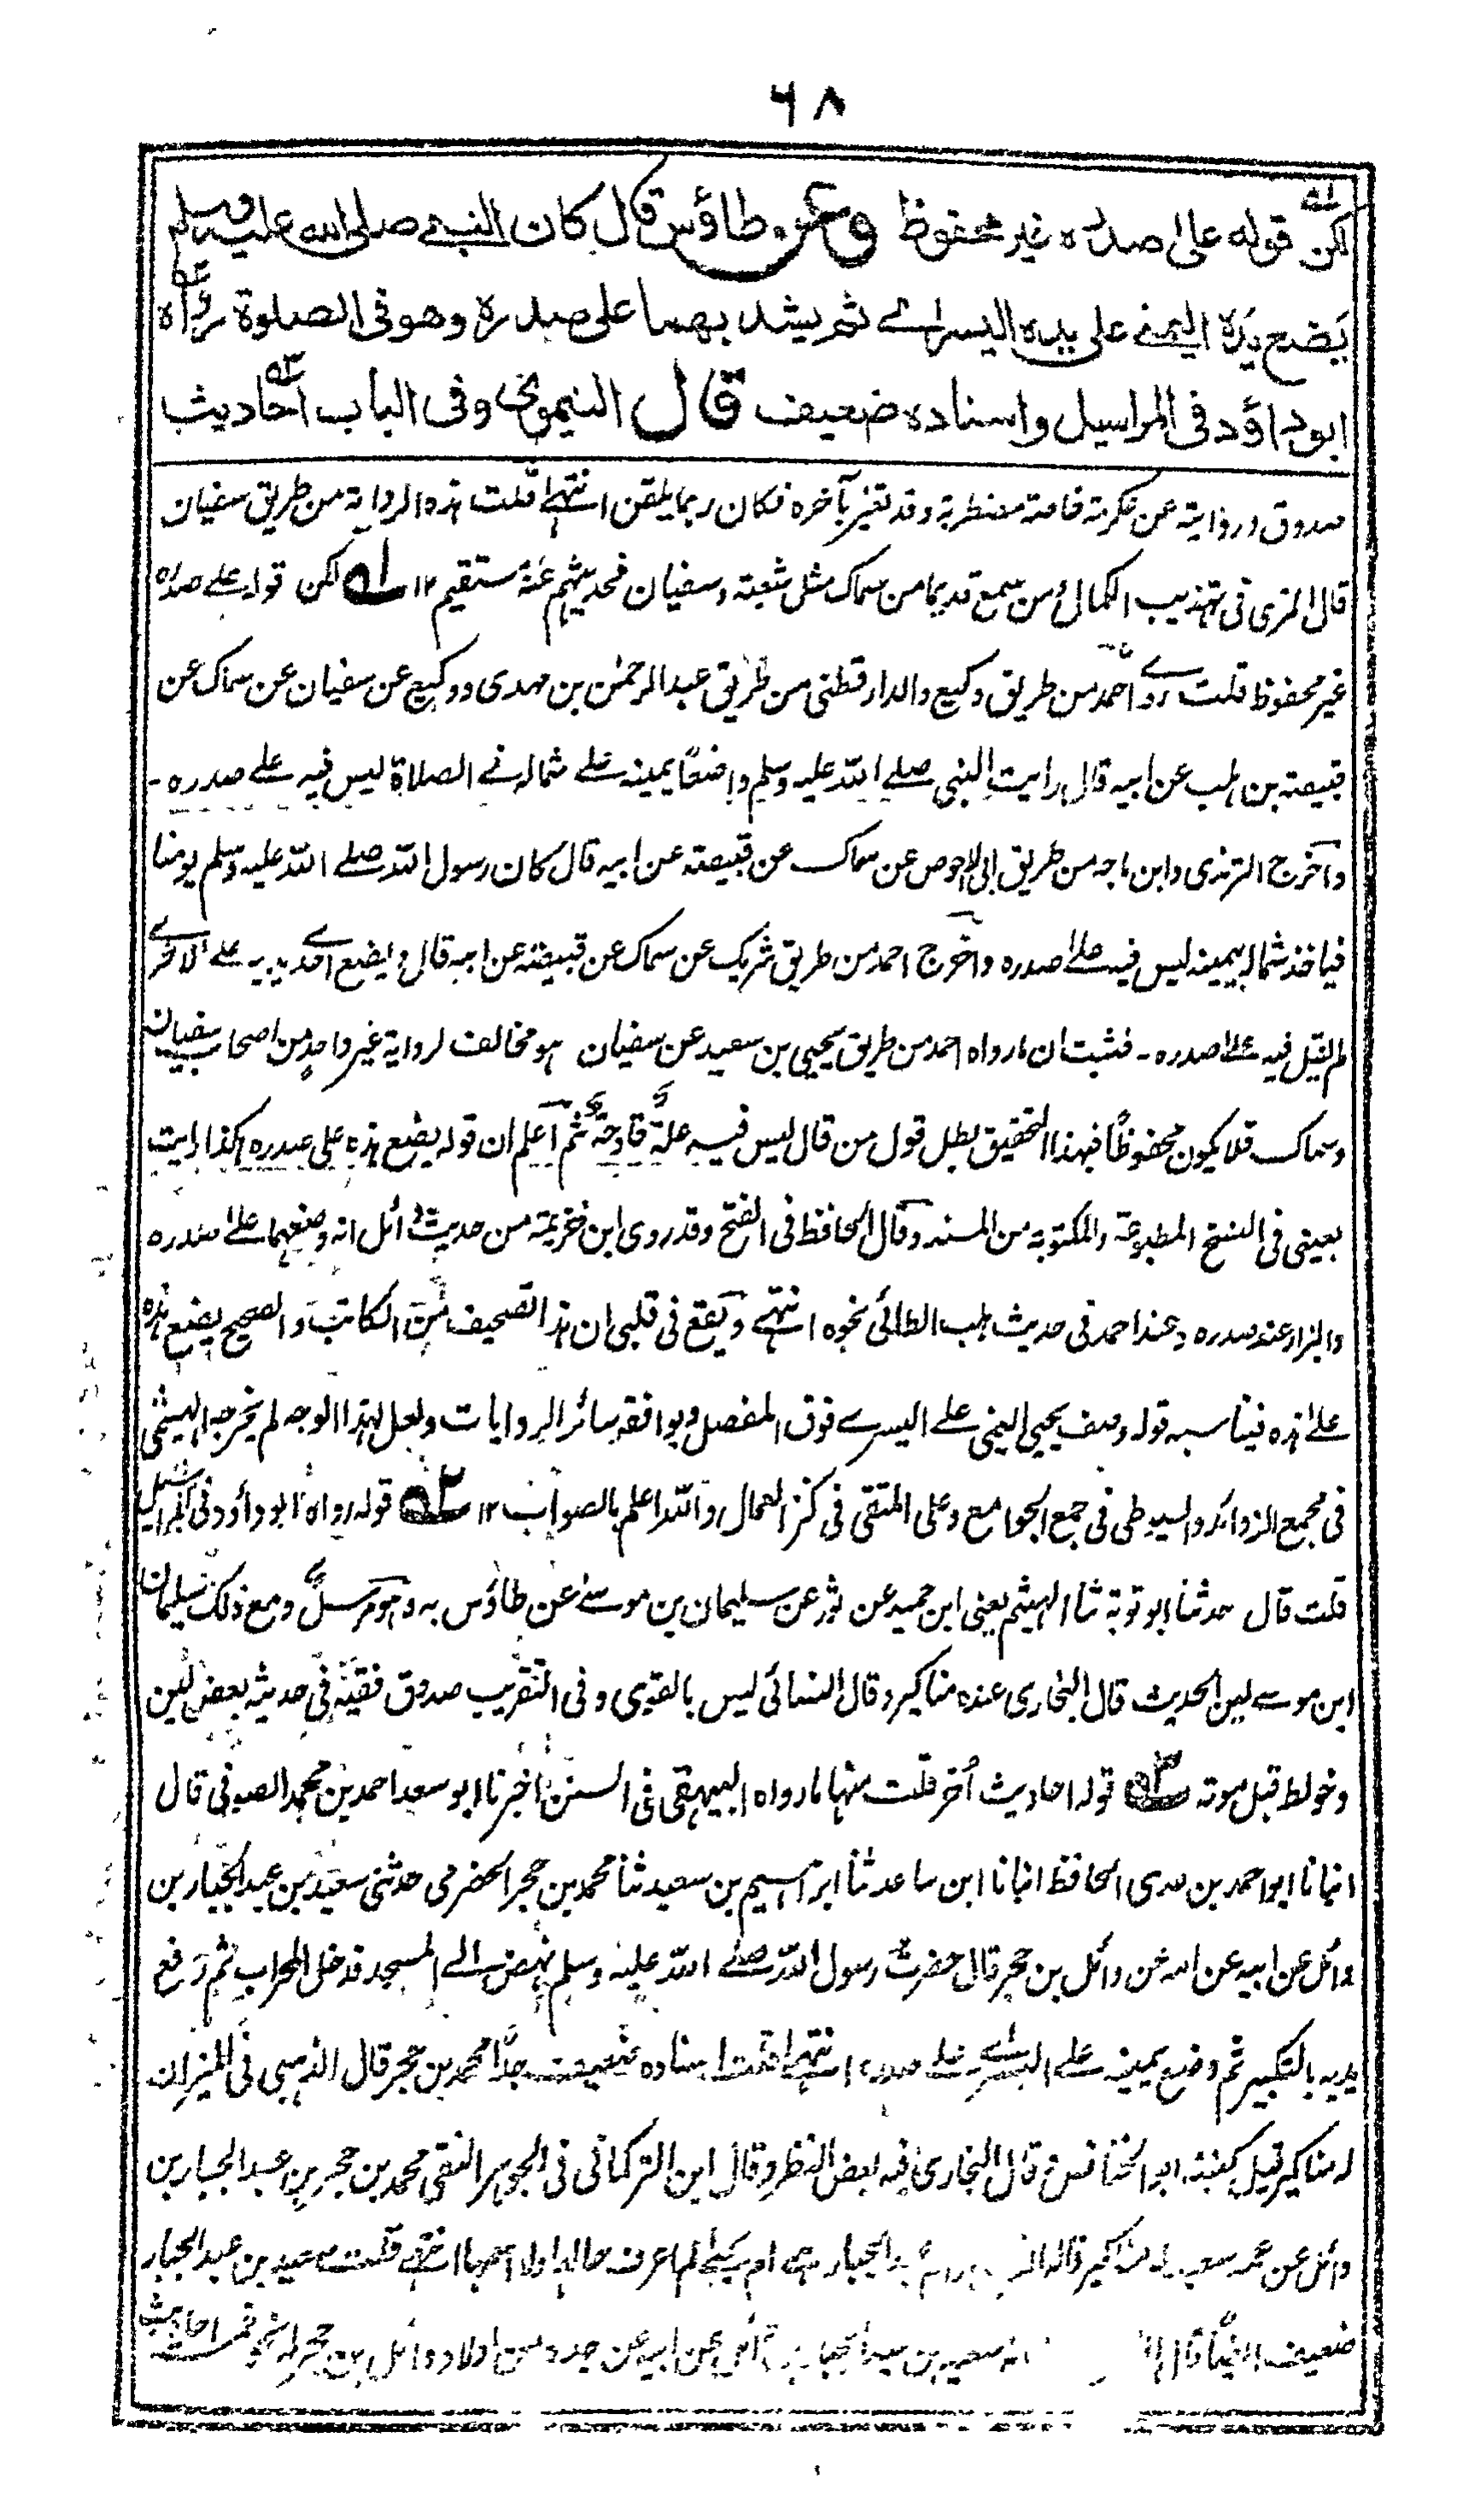 ۶۸
لكن قوله على صدره غير محفوظ وعن طاؤس قال كان النبي صلى الله عليه وسلم
يضع يده اليمنى على يده اليسرى ثم يشد بهما على صدره وهو في الصلوة رواه
ابوداؤد في المراسيل واسناده ضعيف قال النيموي وفي الباب احاديث
صدوق وروايته عن عكرمة خاصة مضطربة وقد تغير بآخره فكان ربما يلقن انتهى قلت هذه الرواية من طريق سفيان
قال المزي في تهذيب الكمال ومن سمع قديما من سماك مثل شعبة وسفيان فحديثهم عنه مستقيم ١٢ ا؎ لكن قوله على صدره
غير محفوظ قلت روى احمد من طريق وكيع والدارقطني من طريق عبد الرحمٰن بن مهدى ووكيع عن سفيان عن سماك عن
قبيصة بن الهلب عن ابيه قال رايت النبي صلى الله عليه وسلم واضعًا يمينه على شماله في الصلاة ليس فيه على صدره -
واخرج الترمذى وابن ماجه من طريق ابى الاحوص عن سماك عن قبيصة عن ابيه قال كان رسول الله صلى الله عليه وسلم يؤمنا
فياخذ شماله بيمينه ليس فيه على صدره واخرج احمد من طريق شريك عن سماك عن قبيصة عن ابيه قال ويضع احدى يديه على الاخرى
لم يقل فيه على صدره - فثبت ان ما رواه احمد من طريق يحيى بن سعيد عن سفيان هو مخالف لرواية غير واحد من اصحاب سفيان
وسماك فلا يكون محفوظًا فبهذا التحقيق بطل قول من قال ليس فيه علة قادحة ثم اعلم ان قوله يضع هذه على صدره هكذا رايت
بعيني في النسخ المطبوعة والمكتوبة من المسند وقال الحافظ في الفتح وقد روى ابن خزيمة من حديث وائل انه وضعهما على صدره
والبزار عند صدره وعند احمد في حديث هلب الطائي نحوه انتهى ويقع في قلبي ان هذا تصحيف من الكاتب والصحيح يضع هذه
على هذه فيناسبه قوله وصف يحيى اليمنى على اليسرى فوق المفصل ويوافقه سائر الروايات ولعل لهذا الوجه لم يخرجه الهيثمي
في مجمع الزوائد والسيوطي في جمع الجوامع وعلى المتقى في كنز العمال والله اعلم بالصواب ١٢ ٢؎ قوله رواه ابو داؤد في المراسيل
قلت قال حدثنا ابو توبة ثنا الهيثم يعني ابن حميد عن ثور عن سليمان بن موسى عن طاؤس به وهو مرسل ومع ذلك سليمان
ابن موسى لين الحديث قال البخارى عنده مناكير وقال النسائى ليس بالقوى وفى التقريب صدوق فقيه فى حديثه بعض لين
وخولط قبل موته ٣؎ قوله احاديث أخر قلت منها ما رواه البيهقى فى السنن اخبرنا ابو سعد احمد بن محمد الصوفى قال
انبانا ابو احمد بن عدى الحافظ انبانا ابن صاعد ثنا ابراهيم بن سعيد ثنا محمد بن حجر الحضرمى حدثنى سعيد بن عبد الجبار بن
وائل عن ابيه عن امه عن وائل بن حجر قال حضرت رسول الله صلى الله عليه وسلم نهض الى المسجد فدخل المحراب ثم رفع
يديه بالتكبير ثم وضع يمينه على اليسرى على صدره انتهى قلت اسناده ضعيف جدًا محمد بن حجر قال الذهبى فى الميزان
له مناكير قيل كنيته ابو الخنافس وقال البخارى فيه بعض النظر وقال ابن التركمانى فى الجوهر النقى محمد بن حجر بن عبد الجبار بن
وائل عن عمه سعيد له مناكير قاله الذهبى وام عبد الجبار هى ام يحيى لم اعرف حالها ولا اسمها انتهى قلت سعيد بن عبد الجبار
ضعيف ايضًا قال سعيد بن عبد الجبار بن وائل عن ابيه عن جده من اولاد وائل بن حجر له نحو خمسة احاديث